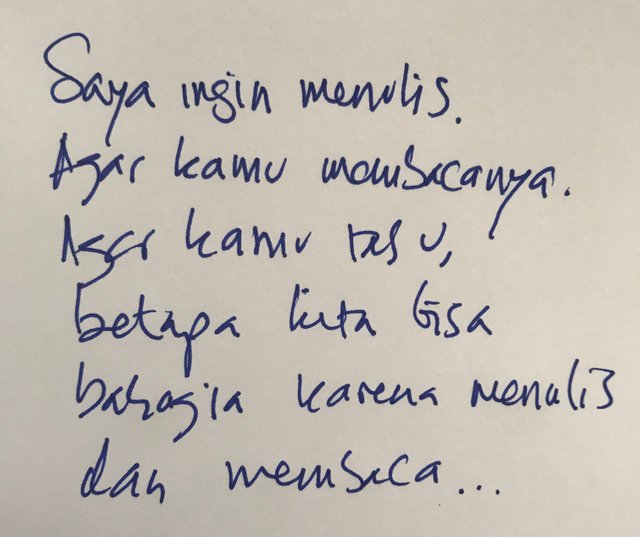 Saya ingin menulis.
Agar kamu membacanya.
Agar kamu tahu,
betapa kita bisa
bahagia karena menulis
dan membaca...